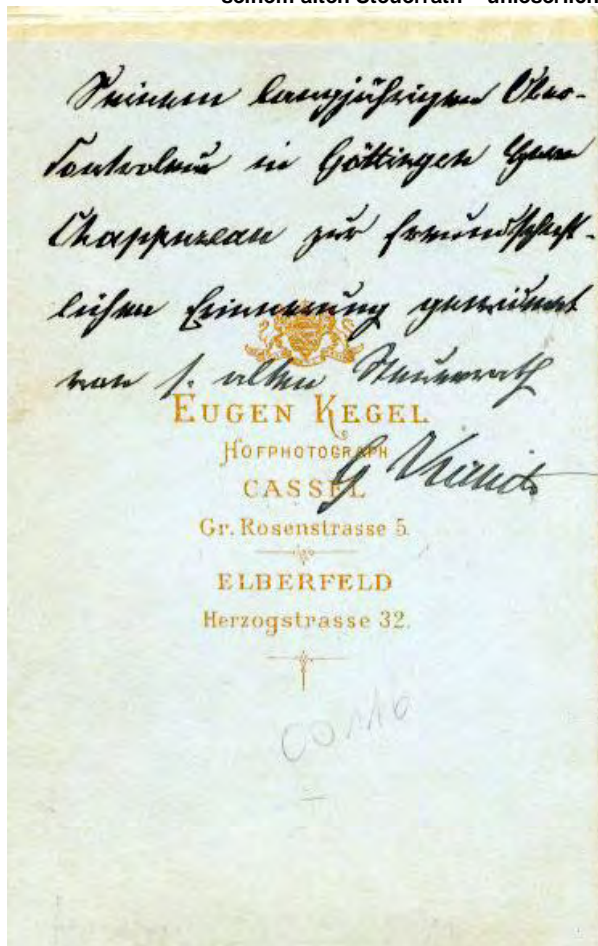 seinem alten Steuerrath unleserlich
Seinem langjährigen Ober-
Kontroleur in Göttingen Herrn
Chappuzeau zur freundschaft-
lichen Erinnerung gewidmet
von s. alten Steuerrath
G
EUGEN KEGEL
HOFPHOTOGRAPH
CASSEL
Gr. Rosenstrasse 5.
ELBERFELD
Herzogstrasse 32.
CO116